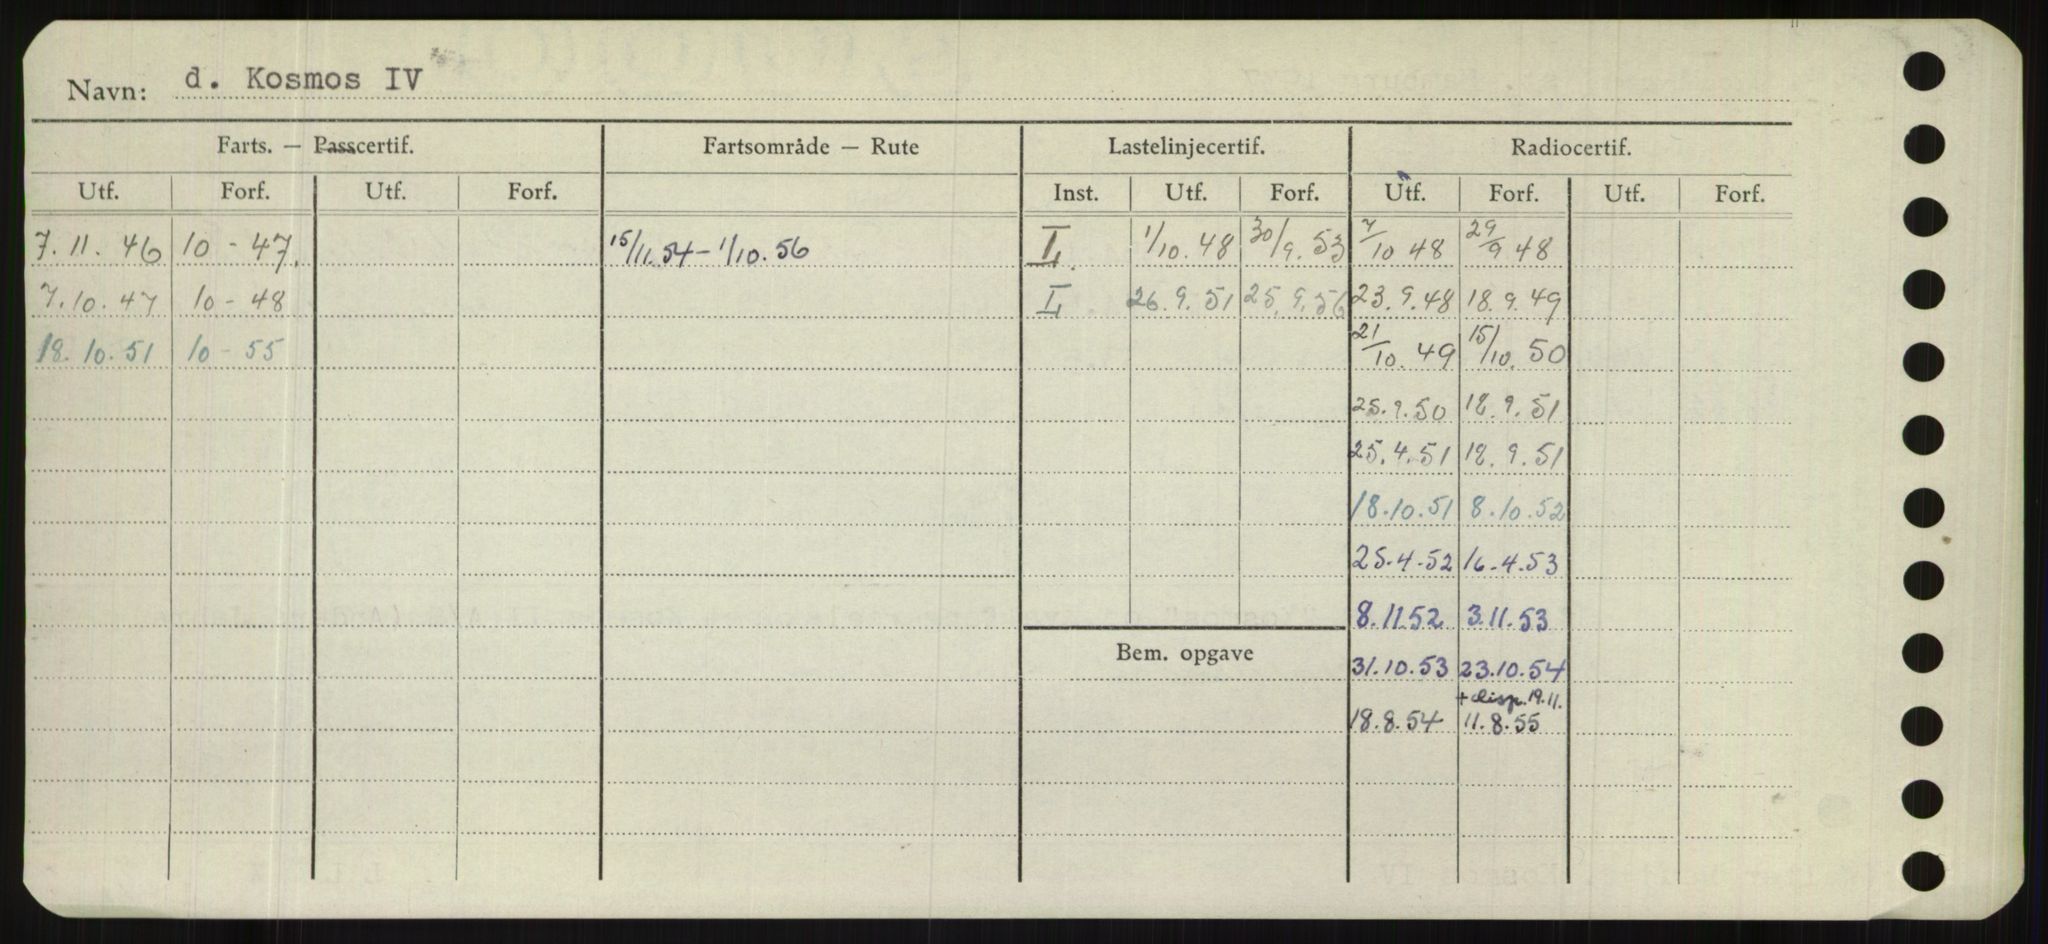 Navn: d. Kosmos IV
Farts. — Passcertif. Fartsområde — Rute Lastelinjecertif. Radiocertif.
Utf. Forf. Utf. Forf. Inst. Utf. Forf. Utf. Forf. Utf. Forf.
7. 11. 46 10 - 47. 15/11.54 - 1/10.56 L. 1/10. 48 30/9. 53 7/10 48 29/9 48
7.10. 47 10 - 48 L 26. 9. 51 25. 9. 56 23. 9. 48 18. 9. 49
18. 10. 51 10 - 55 21/10. 49 15/10. 50
25. 9. 50 18. 9. 51
25. 4. 51 18. 9. 51
18. 10. 51 8. 10. 52
25. 4. 52 16. 4. 53
8. 11. 52 3. 11. 53
Bem. opgave 31. 10. 53 23. 10. 54
+ disp. 19. 11.
18. 8. 54 11. 8. 55